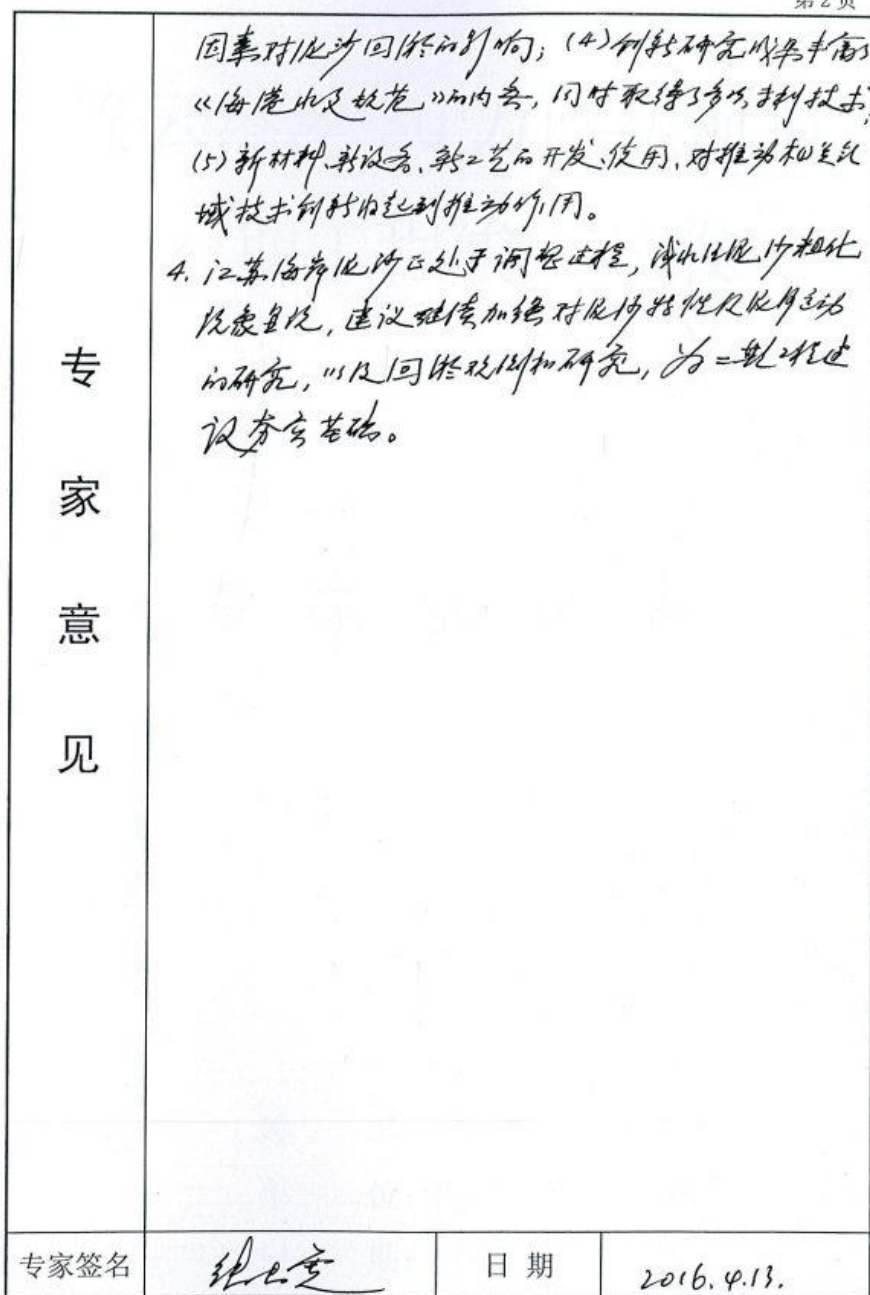 第2页
因素对泥沙回淤的影响；(4)创新研究成果丰富了
《海港水文规范》的内容，同时取得了多项专利技术；
(5)新材料、新设备、新工艺的开发、使用，对推动相关领
域技术创新将起到推动作用。
4. 江苏海岸泥沙正处于调整过程，浅水区泥沙粗化
现象，建议继续加强对泥沙特性及泥沙运动
的研究，以及回淤观测和研究，为二期工程建
设夯实基础。
专
家
意
见
专家签名
日 期
2016.4.13.